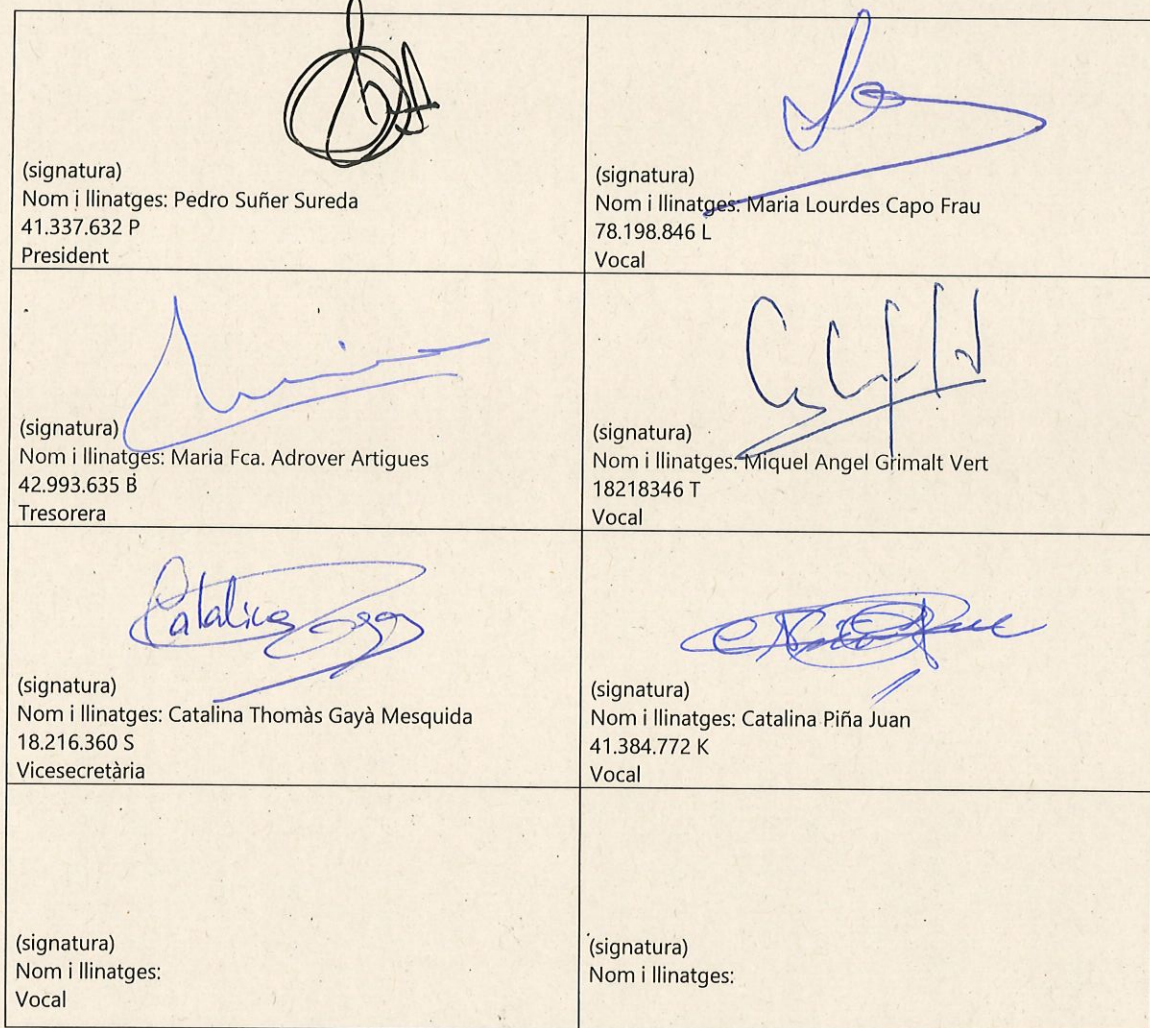 (signatura)
Nom i llinatges: Pedro Suñer Sureda
41.337.632 P
President
(signatura)
Nom i llinatges: Maria Lourdes Capo Frau
78.198.846 L
Vocal
(signatura)
Nom i llinatges: Maria Fca. Adrover Artigues
42.993.635 B
Tresorera
(signatura)
Nom i llinatges: Miquel Angel Grimalt Vert
18218346 T
Vocal
Catalina
(signatura)
Nom i llinatges: Catalina Thomàs Gayà Mesquida
18.216.360 S
Vicesecretària
(signatura)
Nom i llinatges: Catalina Piña Juan
41.384.772 K
Vocal
(signatura)
Nom i llinatges:
Vocal
(signatura)
Nom i llinatges: